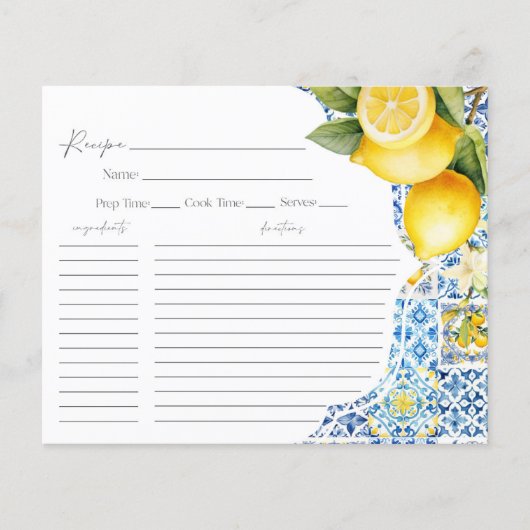 Recipe
Name:
Prep Time: Cook Time: Serves:
ingredients directions